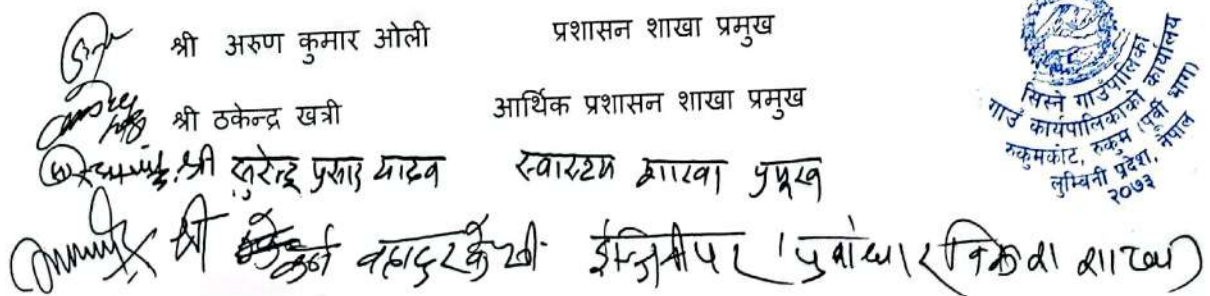 श्री अरुण कुमार ओली प्रशासन शाखा प्रमुख
श्री ठकेन्द्र खत्री आर्थिक प्रशासन शाखा प्रमुख
श्री सुरेन्द्र प्रसाद यादव स्वास्थ्य शाखा प्रमुख
श्री बहादुर के.सी. ईन्जिनीयर (पुर्वाधार विकाश शाखा)
सिस्ने गाउँपालिका
गाउँ कार्यपालिकाको कार्यालय
रुकुमकोट, रुकुम (पूर्वी भाग)
लुम्बिनी प्रदेश, नेपाल
२०७३